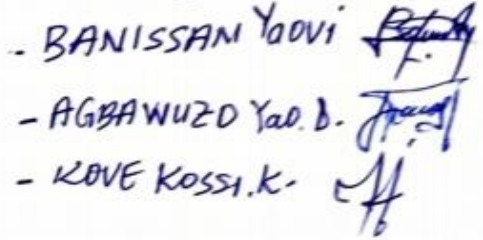 - BANISSAN Yaovi
- AGBAWUZO Yao. D.
- KOVE KOSSI.K.